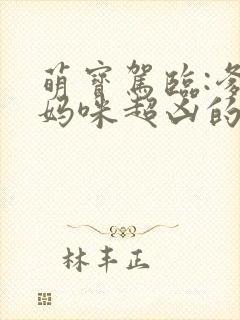 萌寶駕臨:爹
媽咪超凶的
林丰正